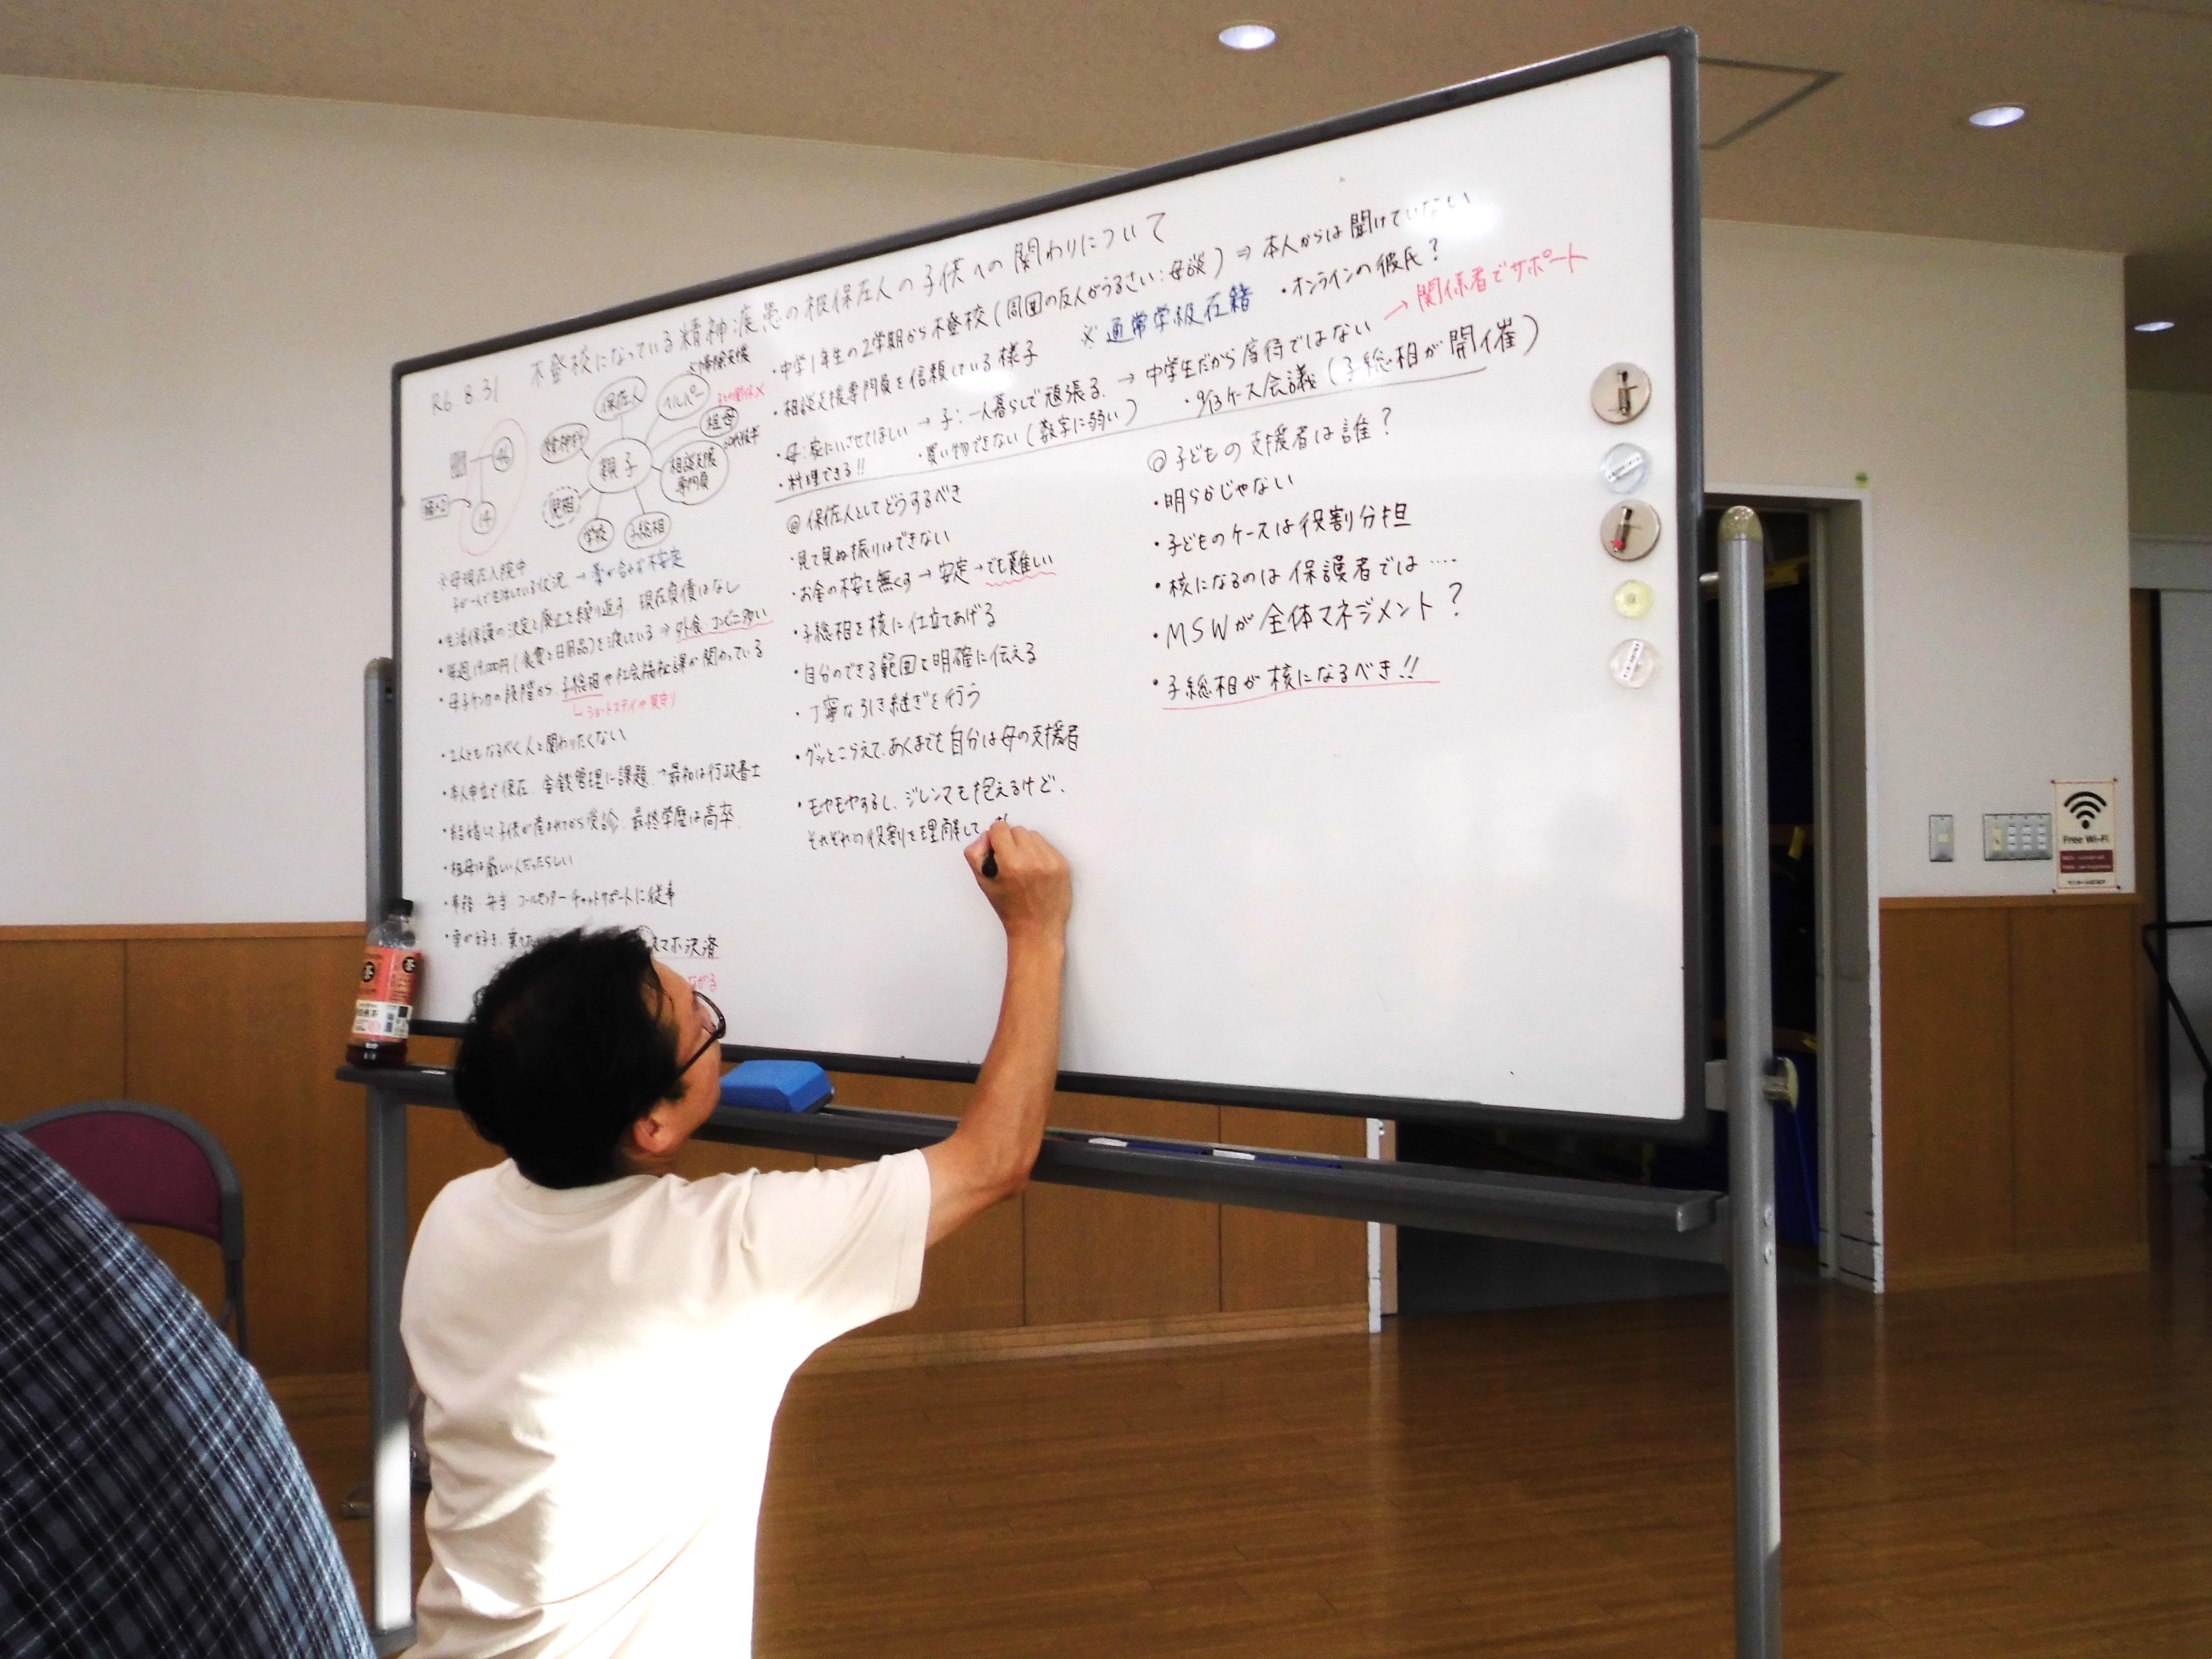 R6.8.31
不登校になっている精神疾患の被保佐人の子供への関わりについて
46
14
親子
保佐人
ヘルパー
掃除支援
祖母
相談支援
専門員
子総相
学校
児相
精神科
※母現在入院中
子が一人で生活している状況 → 薬が合わず不安定
・生活保護の決定と廃止を繰り返す、現在負債はなし
・毎週19,000円(食費と日用品)を渡している ⇒ 外食 コンビニ多い
・母子ケンカの段階から、子総相や社会福祉課が関わっている
ショートステイや見守り
・2人ともなるべく人と関わりたくない
・本人申立で保佐、金銭管理に課題、→最初は行政書士
・結婚して子供が産まれてから受診、最終学歴は高卒
・祖母は厳しい人だったらしい
・事務 弁当 コールセンター チャットサポートに従事
スマホ決済
・中学1年生の2学期から不登校(周囲の友人がうるさい:母談) ⇒ 本人からは聞けていない
・相談支援専門員を信頼している様子
※通常学級在籍
・オンラインの彼氏?
・母:家にいさせてほしい → 子:一人暮らしで頑張る、→ 中学生だから虐待ではない → 関係者でサポート
・料理できる!!
・買い物できない(数字に弱い)
・9/13ケース会議(子総相が開催)
◎保佐人としてどうするべき
・見て見ぬ振りはできない
・お金の不安を無くす → 安定 → でも難しい
・子総相を核に仕立てあげる
・自分のできる範囲を明確に伝える
・丁寧な引き継ぎを行う
・グッとこらえて、あくまでも自分は母の支援者
・モヤモヤするし、ジレンマも抱えるけど、
それぞれの役割を理解して
◎子どもの支援者は誰?
・明らかじゃない
・子どものケースは役割分担
・核になるのは保護者では‥‥
・MSWが全体マネジメント?
・子総相が核になるべき!!
Free Wi-Fi